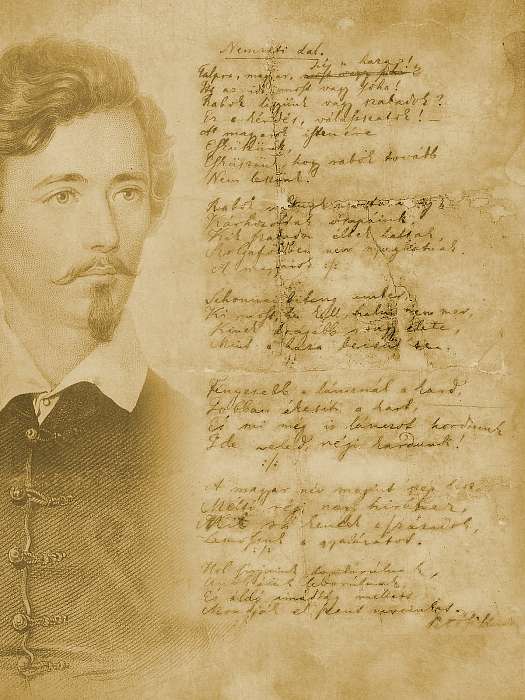 Nemzeti dal.
Talpra, magyar, hí a haza!
Itt az idő, most vagy soha!
Rabok legyünk vagy szabadok?
Ez a kérdés, válasszatok! –
A magyarok istenére
Esküszünk,
Esküszünk, hogy rabok tovább
Nem leszünk!
Rabok voltunk mostanáig
Kárhozottak ősapáink,
Kik szabadon éltek haltak
Szolgaföldben nem nyughatnak.
A magyarok
Sehonnai bitang ember,
Ki most, ha kell, halni nem mer,
Kinek drágább rongy élete,
Mint a haza becsülete.
:/:
Fényesebb a láncnál a kard,
Jobban ékesíti a kart,
És mi még is láncot hordunk
Ide veled, régi kardunk!
:/:
A magyar név megint szép lesz
Méltó régi nagy hiréhez,
Mit rá kentek a századok,
Lemossuk a gyalázatot.
:/:
Hol sírjaink domborulnak,
Unokáink leborulnak,
És áldó imádság mellett
Mondják el szent neveinket.